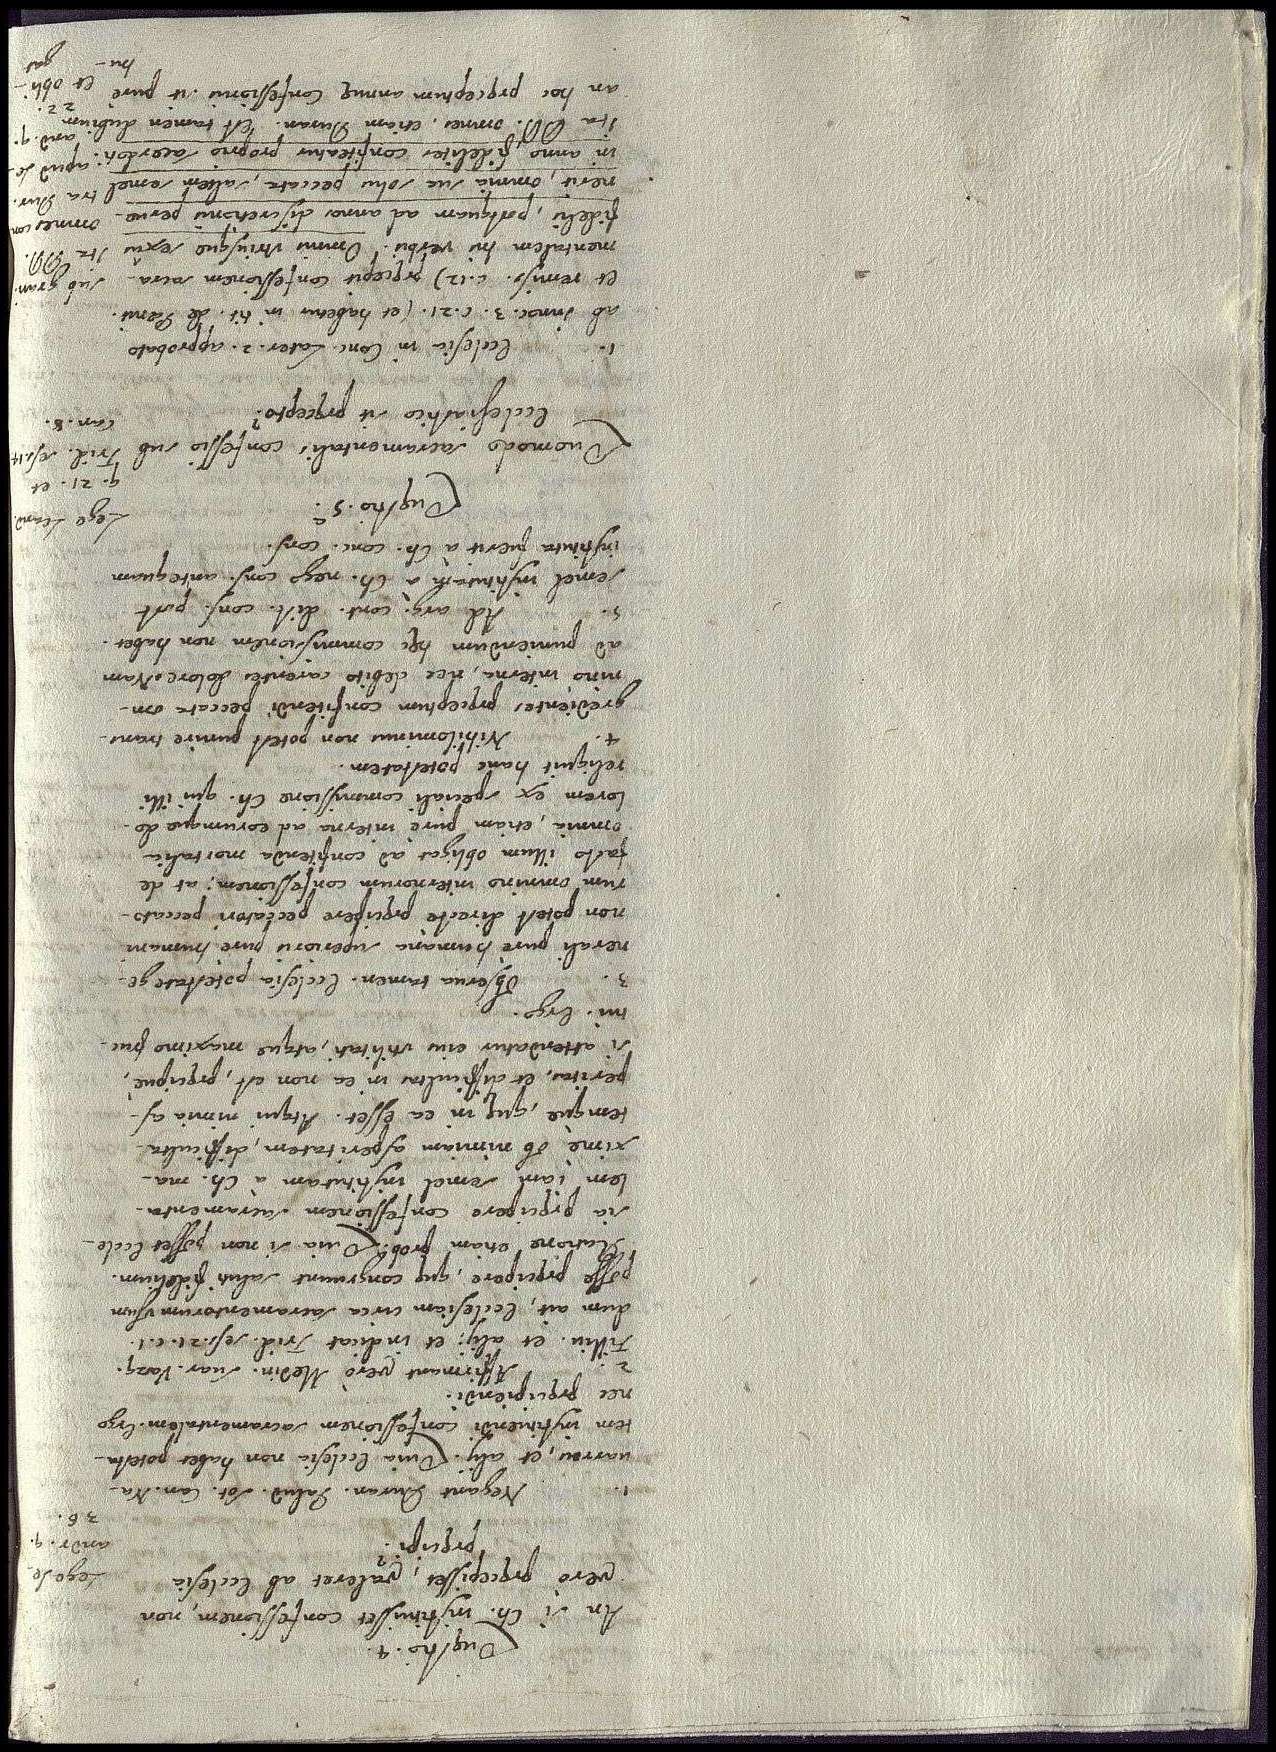 Quęstio. 4.
An si Ch. instituisset confessionem, non
verò pręcepisset, valeret ab Ecclesia
pręcipi?
Lege Le-
andr. q.
36.
1. Negant Duran. Palud. Sot. Can. Na-
uarrus, et alij. Quia Ecclesia non habet potesta-
tem instituendi confessionem sacramentalem. Ergo
nec pręcipiendi.
2. Affirmant verò Medin. Suar. Vazq.
Filliu. et alij; et indicat Trid. ses. 21. c. 2.
dum ait, Ecclesiam circa sacramentorum usum
posse pręcipere, quę congruunt saluti fidelium.
Ratione etiam prob. Quia si non posset Eccle-
sia pręcipere confessionem sacramenta-
lem iam semel institutam à Ch. ma-
ximè ob nimiam asperitatem, difficulta-
temque, quę in ea esset. Atqui nimia as-
peritas, et difficultas in ea non est, pręcipuè,
si attendatur eius utilitati, atque maximo fruc-
tui. Ergo.
3. Obserua tamen. Ecclesia potestate ge-
nerali purè humana superioris purè humani
non potest directè pręcipere peccatori peccato-
rum omnino internorum confessionem: at de
facto illum obligat ad confitenda mortalia
omnia, etiam purè interna ad eorumque do-
lorem ex speciali commissione Ch. qui illi
reliquit hanc potestatem.
4. Nihilominus non potest punire trans-
gredientes pręceptum confitendi peccata om-
nino interna, nec debito carentes dolore. Nam
ad puniendum hęc commissionem non habet.
5. Ad arg. cont. dist. conf. post
semel institutam à Ch. nego conf. antequam
instituta fuerit à Ch. conc. conf.
Quęstio. 5.ª
Lege Leand.
q. 21. et
Trid. ses. 14
can. 8.
Quomodo sacramentalis confessio sub
Ecclesiastico sit pręcepto?
1. Ecclesia in Conc. Later. 2. approbato
ab Innoc. 3. c. 21. (et habetur in tit. de Pęnit.
et remiss. c. 12) pręcepit confessionem sacra-
mentalem his verbis. Omnis utriusque sexus
fidelis, postquam ad annos discretionis perue-
nerit, omnia sua solus peccata, saltem semel
in anno fideliter confiteatur proprio sacerdoti.
Ita DD. omnes, etiam Duran. Est tamen dubium
an hoc pręceptum annuę Confessionis sit purè
hu-
sub graui.
Ita DD.
omnes con-
tra Dur.
apud Le-
and. q.
22.
et obli-
gat